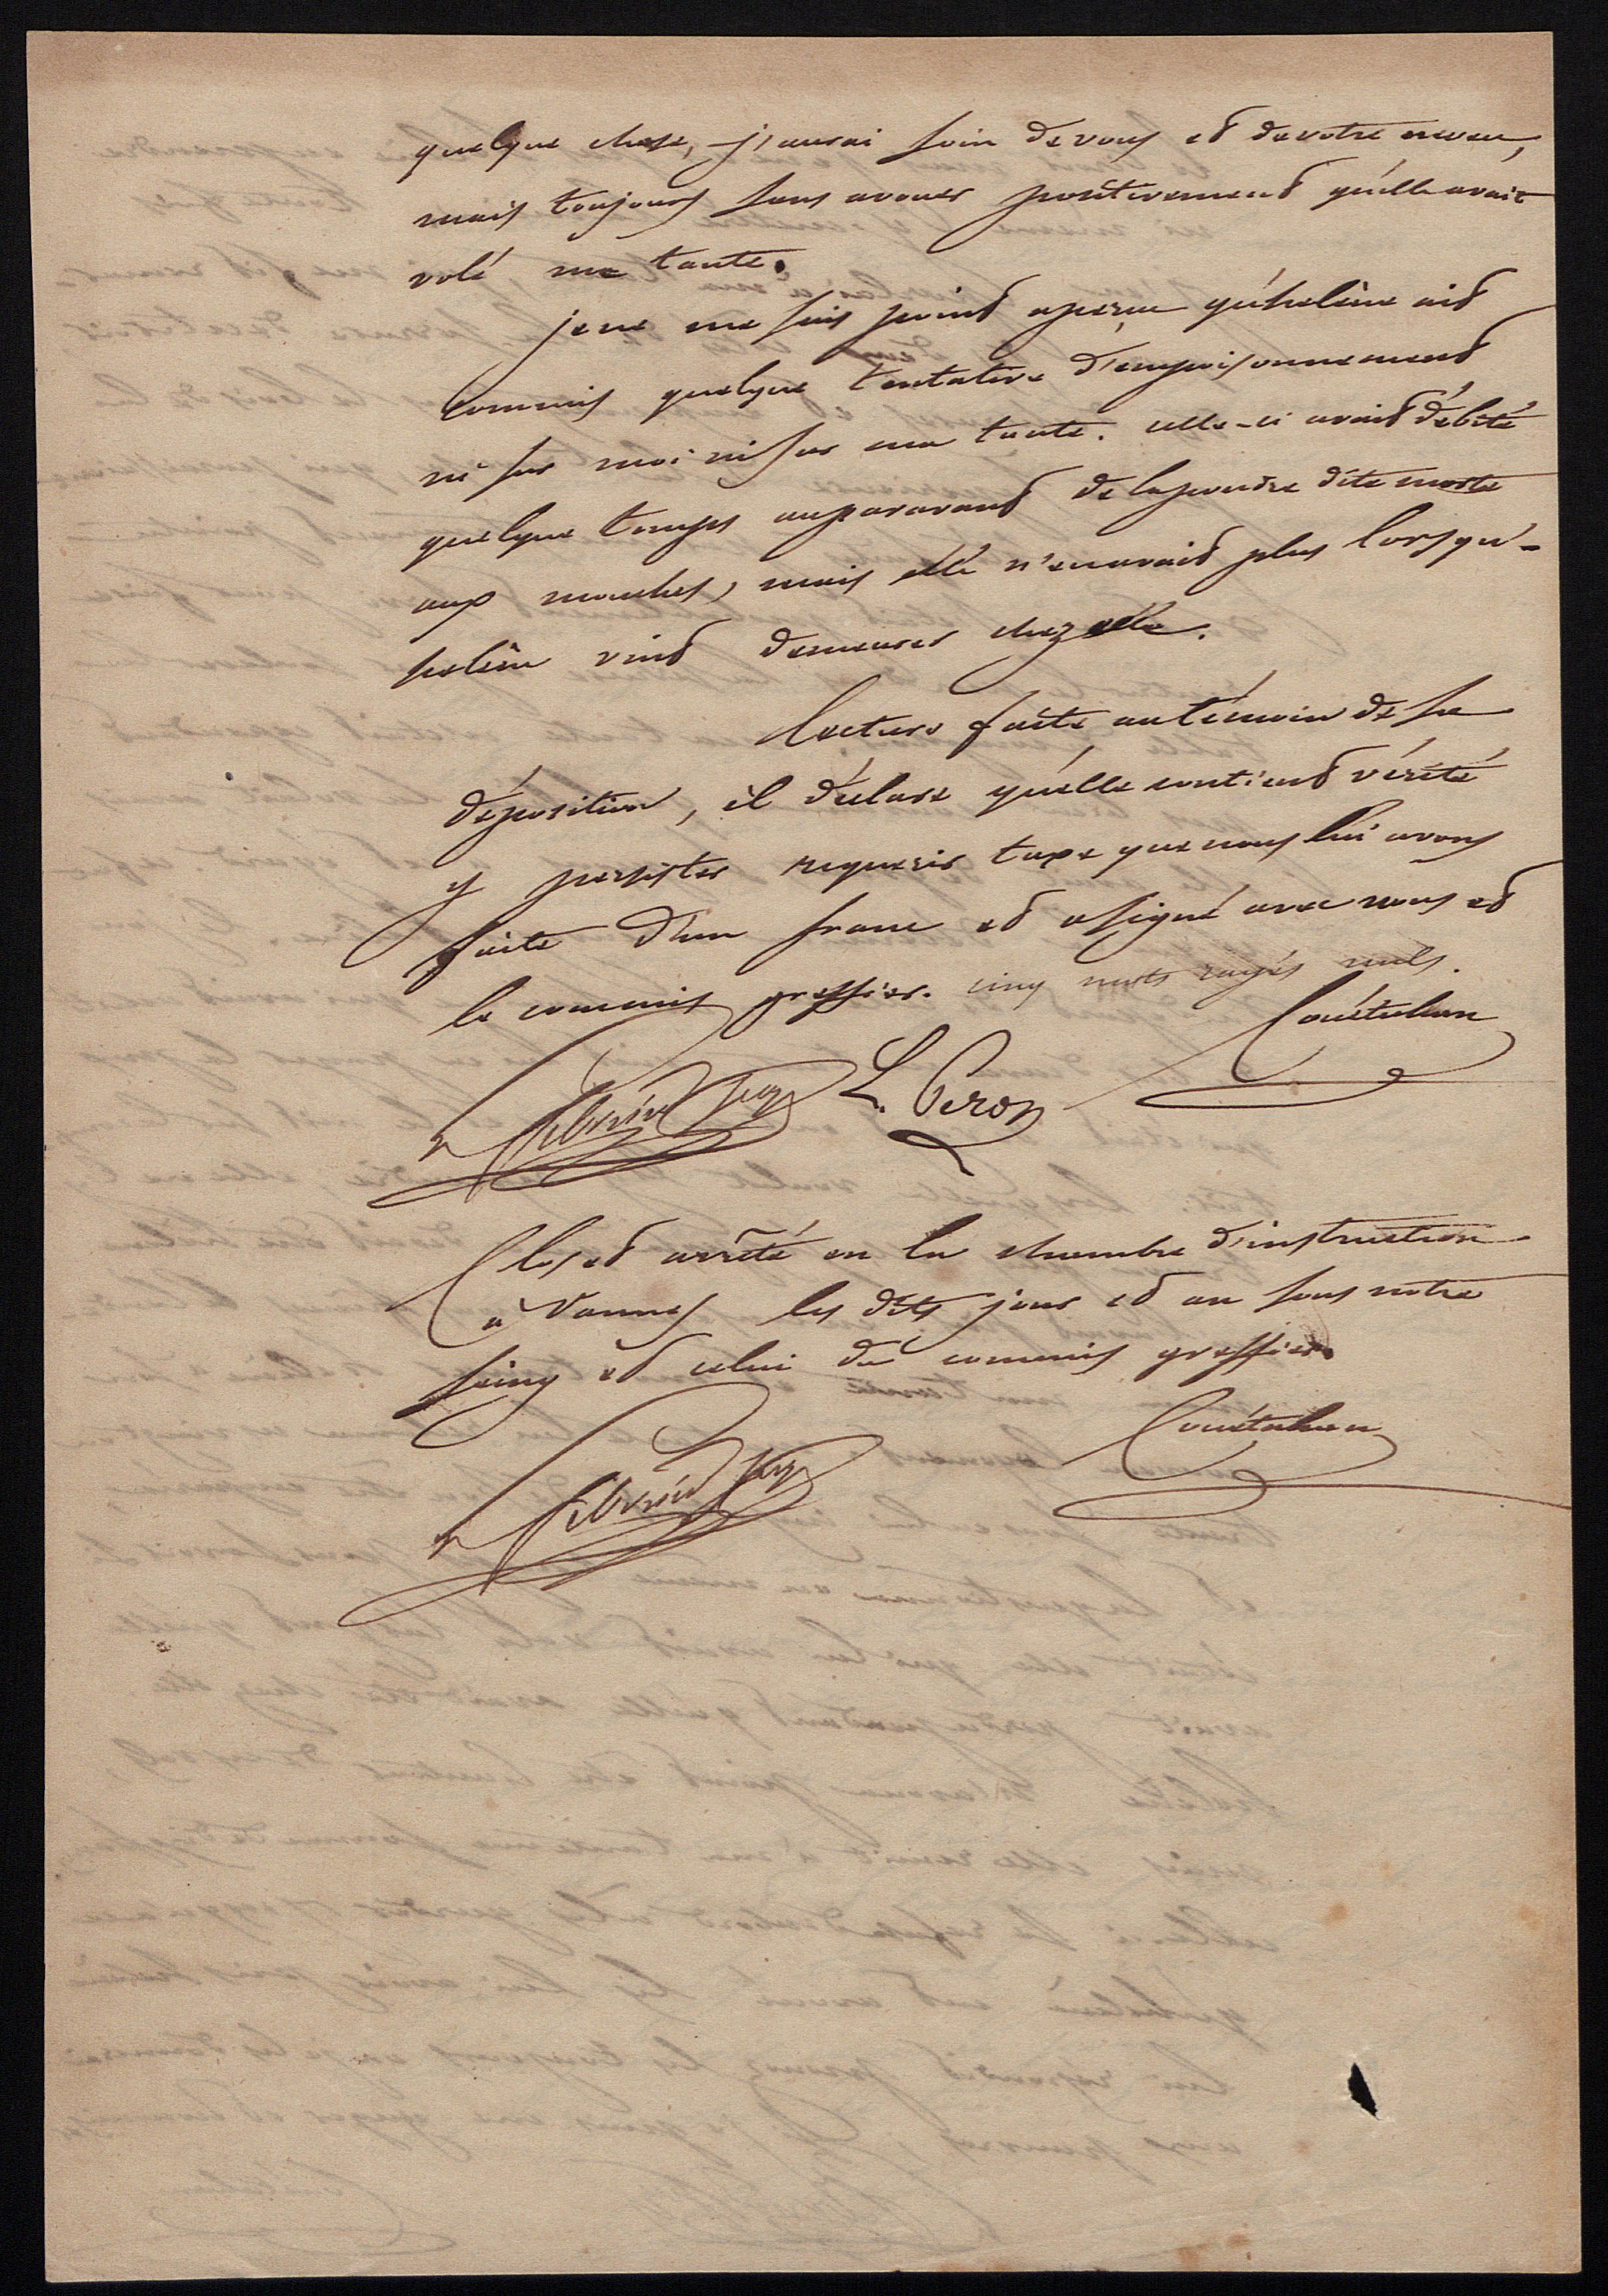 quelque chose, j'aurai soin de vous et de votre neveu,
mais toujours sans avouer positivement qu'elle avait
volé ma tante.
je ne me suis point aperçu qu'helène ait
commis quelque tentative d'empoisonnement
ni sur moi ni sur ma tante. celle-ci avait débité
quelque temps auparavant de la poudre dite morte
aux mouches, mais elle n'en avait plus lorsqu'-
helène vint demeurer chez elle.
Lecture faite au témoin de sa
déposition, il déclare qu'elle contient vérité
y persister requerir taxe que nous lui avons
faite d'un franc et a signé avec nous et
le commis greffier. cinq mots rayés nuls.
L. Peron
Clos et arrêté en la chambre d'instruction
à Vannes les dits jour et an sous notre
seing et celui du commis greffier.